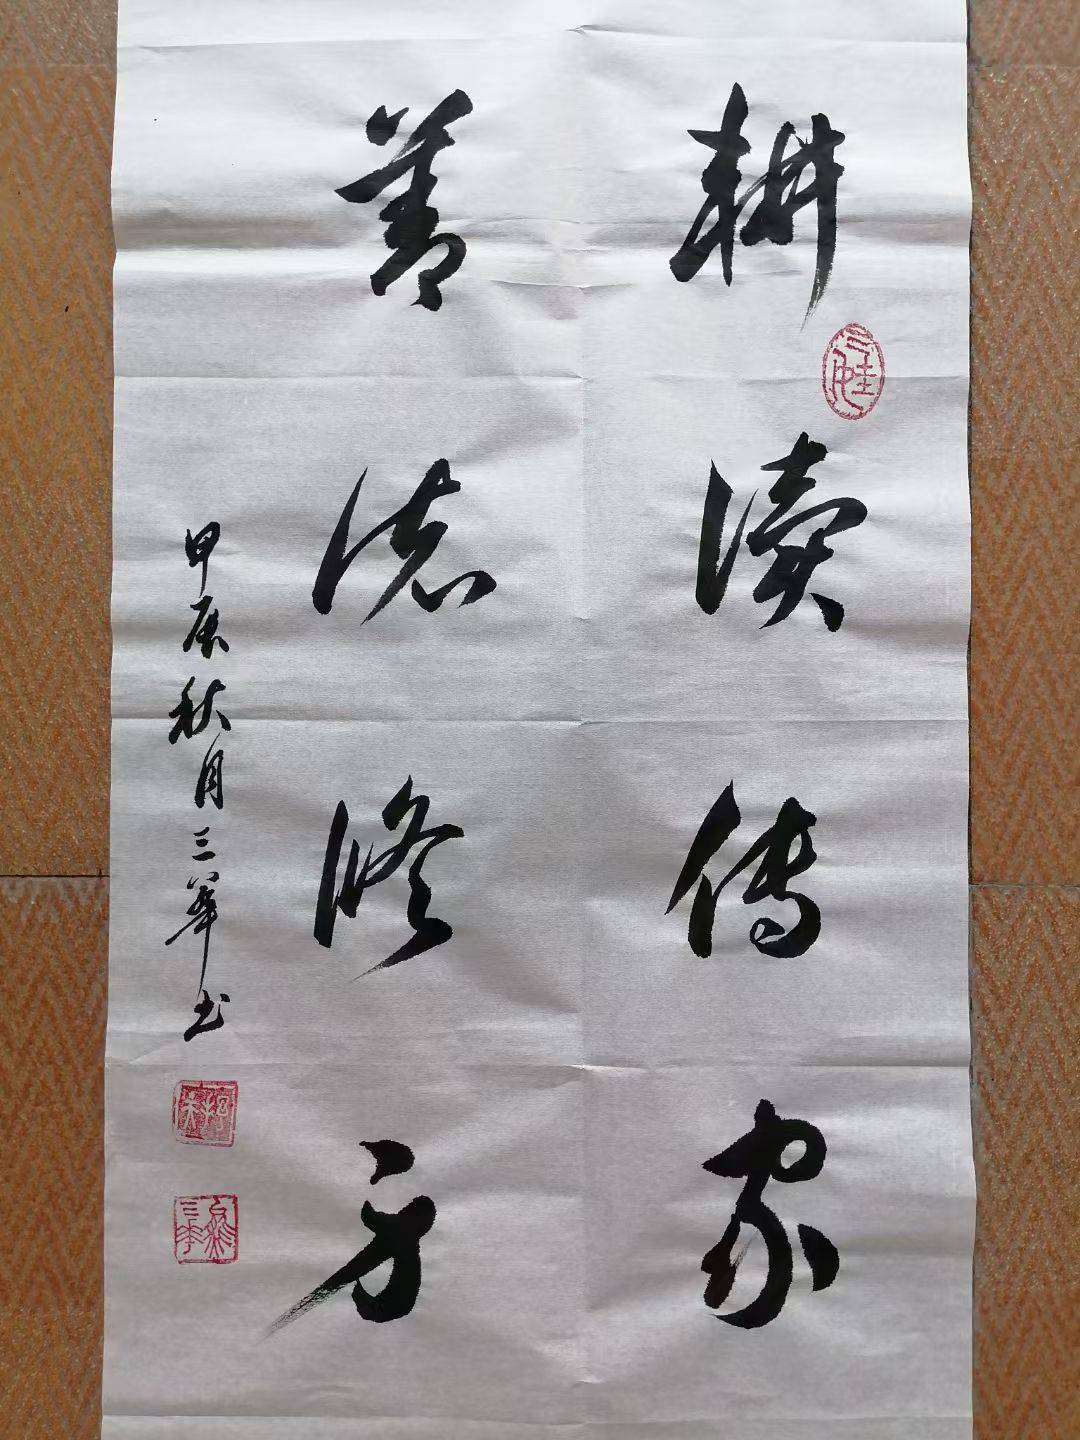 耕讀傳家
善德修身
甲辰秋月三峯书